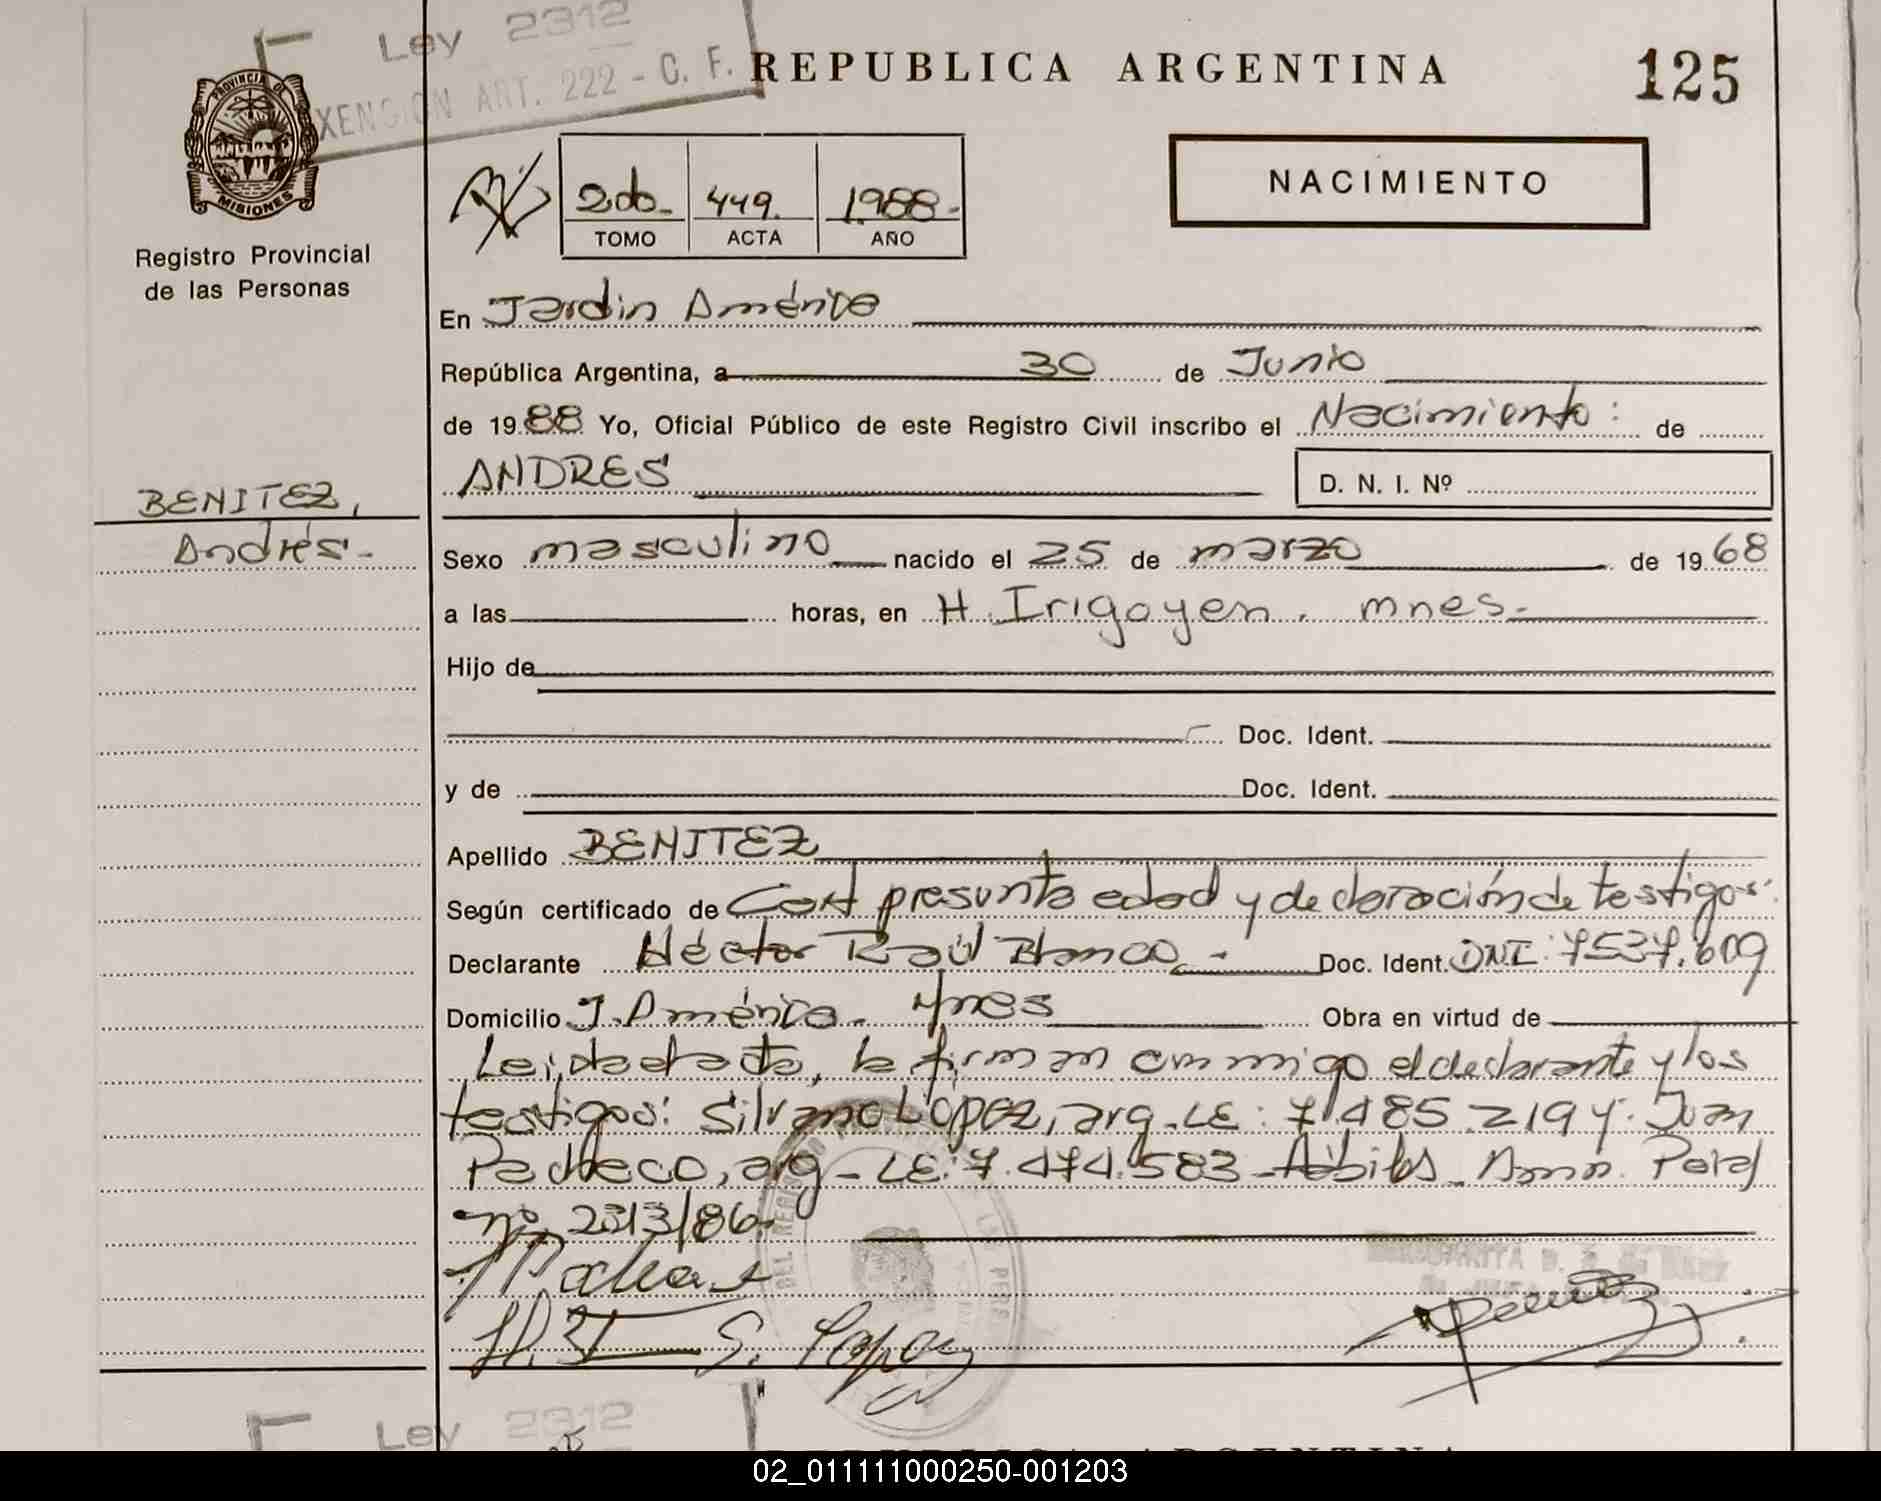 Ley 2312
EXENCION ART. 222 - C. F.
REPUBLICA ARGENTINA
125
PROVINCIA DE MISIONES
Registro Provincial
de las Personas
2do. 449. 1.988.-
TOMO ACTA AÑO
NACIMIENTO
En Jardin América
República Argentina, a 30 de Junio
de 1988 Yo, Oficial Público de este Registro Civil inscribo el Nacimiento: de
ANDRES
D. N. I. Nº
BENITEZ,
Andrés.-
Sexo masculino nacido el 25 de marzo de 1968
a las horas, en H. Irigoyen. mnes.-
Hijo de
Doc. Ident.
y de Doc. Ident.
Apellido BENITEZ
Según certificado de Cert presunta edad y declaración de testigos:
Declarante Héctor Raúl Blanco.- Doc. Ident. DNI: 7537.609
Domicilio J. América. Mnes Obra en virtud de
Leida el acta, la firman conmigo el declarante y los
testigos: Silvano López, arg. LE: 7.485.219 y. Juan
Pacheco, arg - LE: 7.474.583 - Hábiles. Amn. Parcl
nº 2313/86.
S. Lopez
Ley 2312
REPUBLICA ARGENTINA
02_011111000250-001203